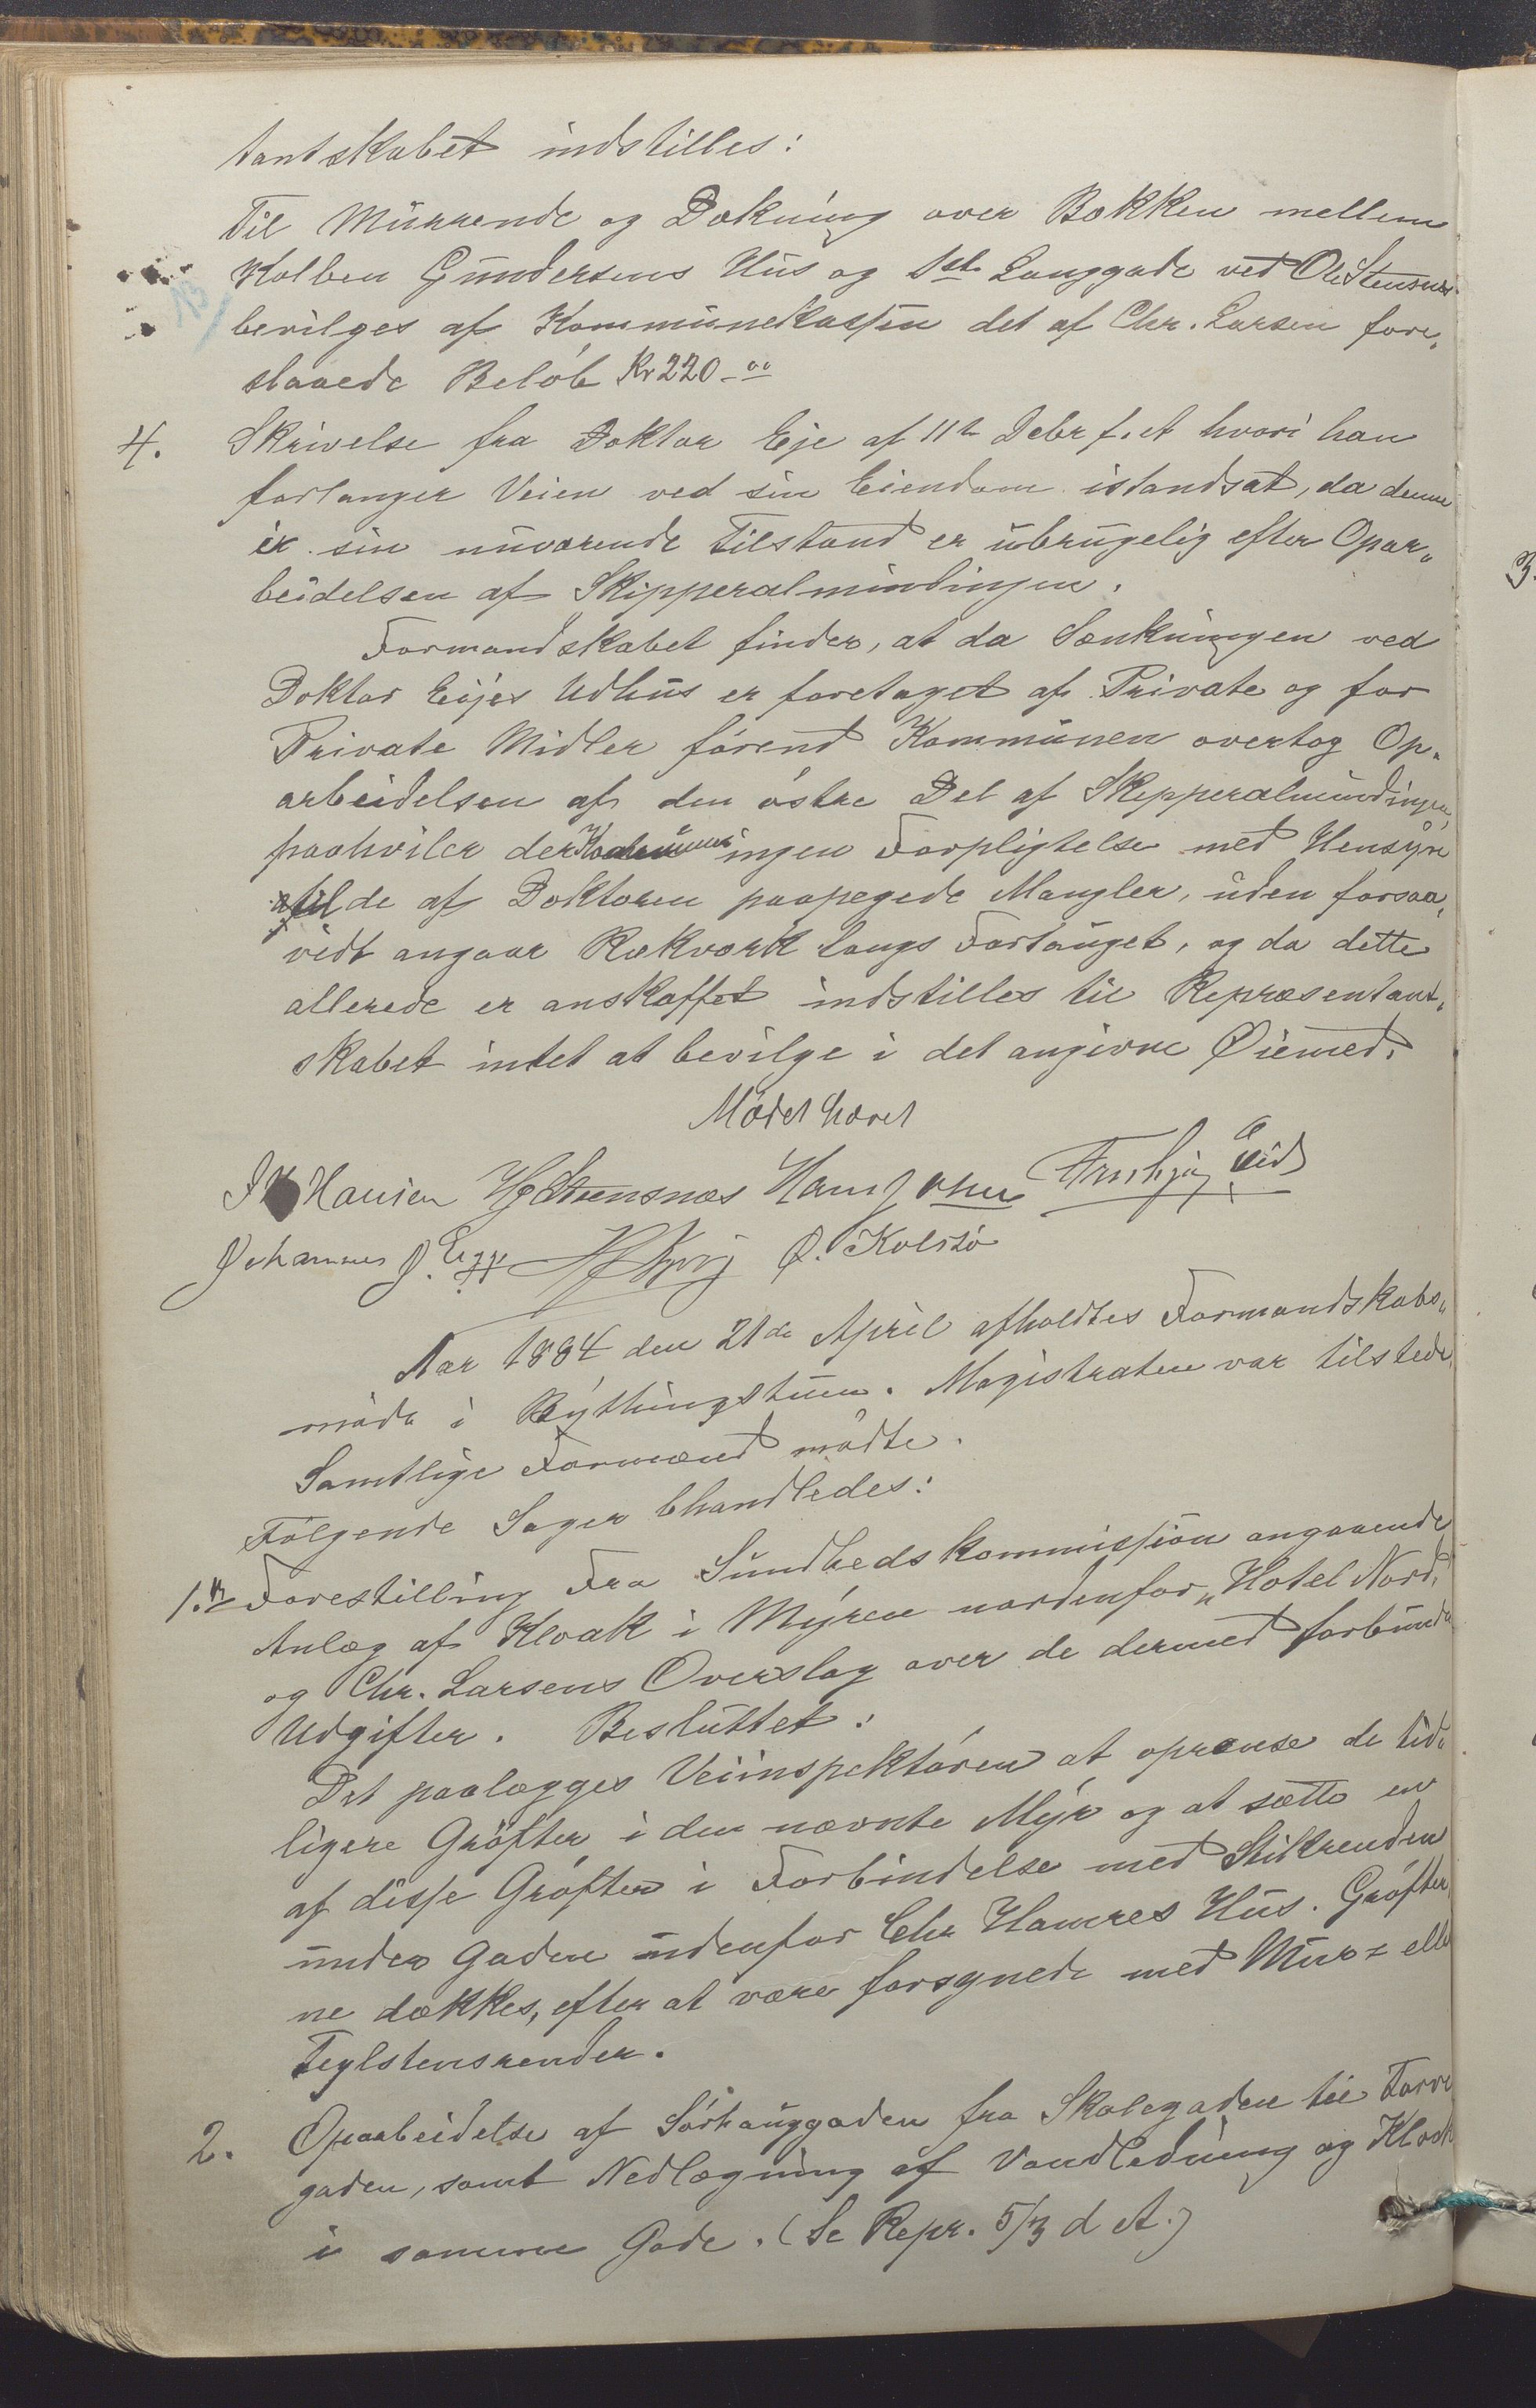 tantskabet indstilles:
Til Murrende og Dækning over Bækken mellem
Kolben Gundersens Hus og 1ste Langgade ved Ole Stensnæs
bevilges af Kommunekassen det af Chr. Larsen fore-
slaaede Beløb Kr 220-00
4. Skrivelse fra Doktor Eje af 11te Debr f. A hvori han
forlanger Veien ved sin Eiendom istandsat, da denne
i sin nuværende Tilstand er ubrugelig efter Opar-
beidelsen af Skipperalmindingen.
Formandskabet finder, at da Sænkningen ved
Doktor Eijes Udhus er foretaget af Private og for
Private Midler førend Kommunen overtog Op-
arbeidelsen af den østre Del af Skipperalmindingen,
paahviler der Kommunen ingen Forpligtelse med Hensyn
til de af Doktoren paapegede Mangler, uden forsaa-
vidt angaar Rækværk langs Fortauget, og da dette
allerede er anskaffet indstilles til Repræsentant-
skabet intet at bevilge i det angivne Øiemed.
Mødet hævet
Hansen Stensnæs Eid
Johannes J. Egge O. Kolstø
Aar 1884 den 21de April afholdtes Formandskabs-
møde i Bythingstuen. Magistraten var tilstede
Samtlige Formænd mødte.
Følgende Sager bhandledes:
1. Forestilling Fra Sundhedskommission angaaende
Anlæg af Kloak i Myren nordenfor „Hotel Nord"
og Chr. Larsens Overslag over de dermed forbundne
Udgifter. Besluttet:
Det paalægges Veiinspektøren at oprense de tid-
ligere Grøfter i den nævnte Myr og at sætte en
af disse Grøfter i Forbindelse med Stikrenden
under Gaden udenfor Chr Hamres Hus. Grøfter
ne dækkes, efter at være forsynede med Mur= eller
Teglstensrender.
2. Oparbeidelse af Sørhauggaden fra Skolegaden til Torve
gaden, samt Nedlægning af Vandledning og Kloak
i samme Gade. (Se Repr. 5/3 d A.)